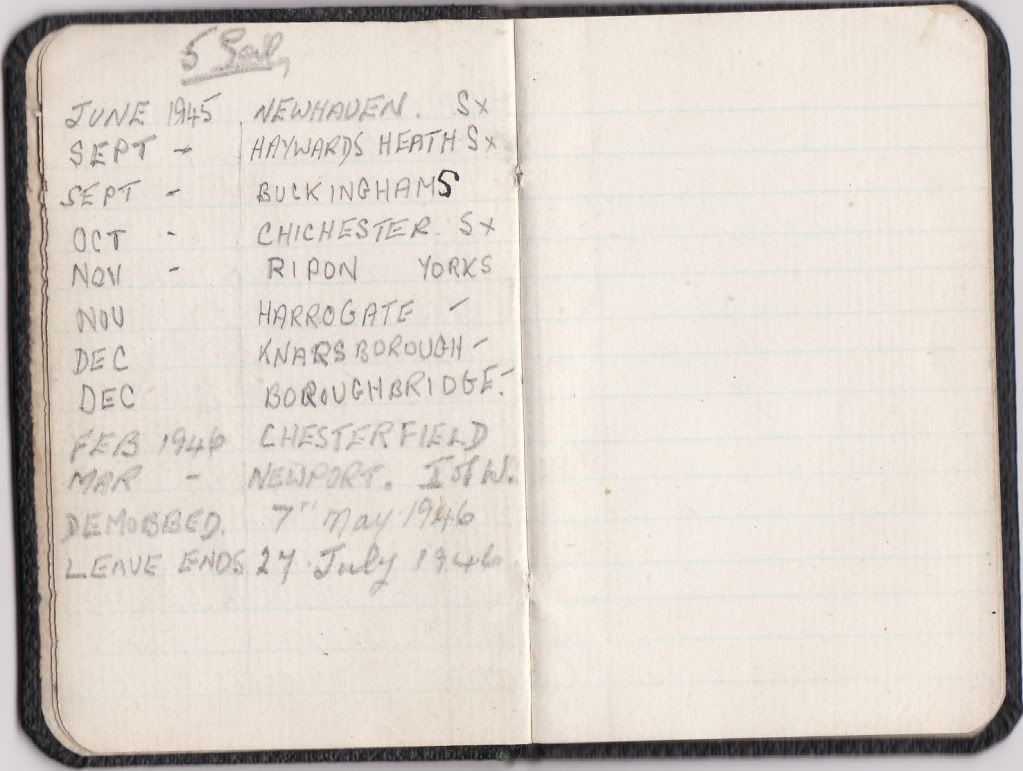 5
JUNE 1945 NEWHAVEN. Sx
SEPT - HAYWARDS HEATH Sx
SEPT - BUCKINGHAMS
OCT - CHICHESTER. Sx
NOV - RIPON YORKS
NOV HARROGATE -
DEC KNARSBOROUGH -
DEC BOROUGHBRIDGE. -
FEB 1946 CHESTERFIELD
MAR - NEWPORT. I of W.
DEMOBBED. 7TH May 1946
LEAVE ENDS 27 July 1946